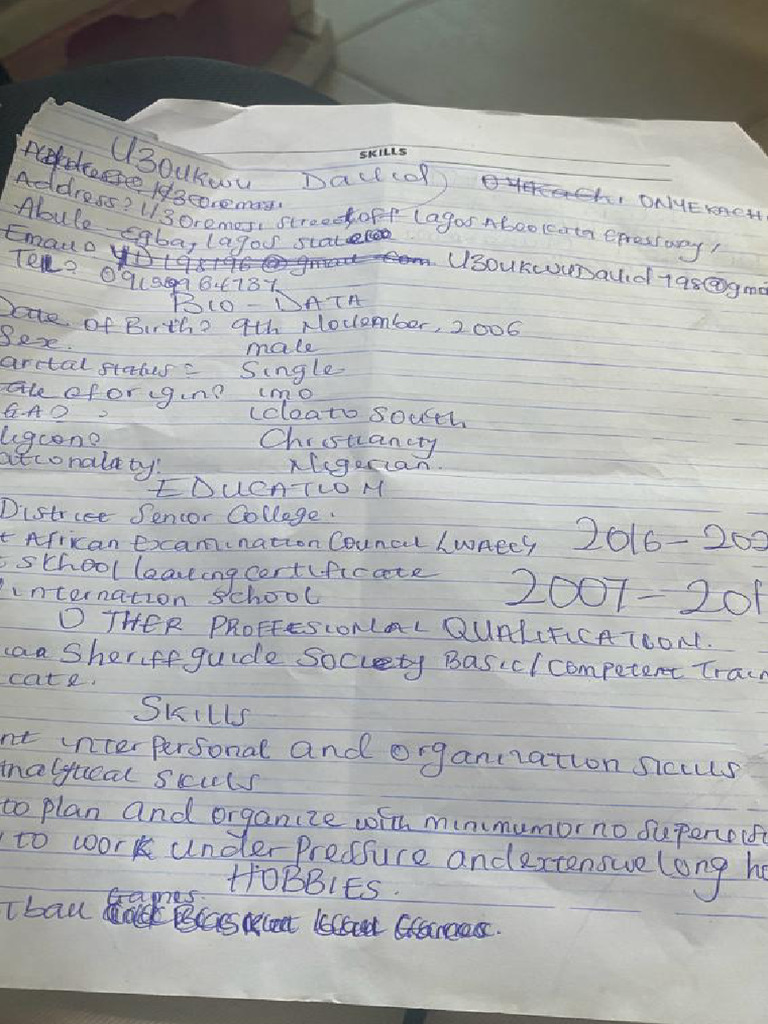 SKILLS
U3OUKWU David ONYEKACHI
Address? 1/3 Oremeji street off Lagos Abeokuta Epressway,
Abule Egba, Lagos state
Email? U3OUKWUDavid198@gmai
Tel? 091
BIO-DATA
Date of Birth? 9th November, 2006
Sex. male
arital status = Single
ate of origin? imo
GAO? ideato South
ligion? Christianity
ationality: Nigerian.
EDUCATION
District Senior College.
t Afirkan Examination Council (WAEC) 2016 - 202
t school leaving certificate
internation school 2007 - 201
OTHER PROFFESIONAL QUALIFICATION.
can Sheriff guide Society Basic/Competent Train
cate.
Skills
nt interpersonal and organization skills
Analytical skills
to plan and organize with minimum or no supervis
to work under pressure and extensive long ho
HOBBIES.
tball Games.